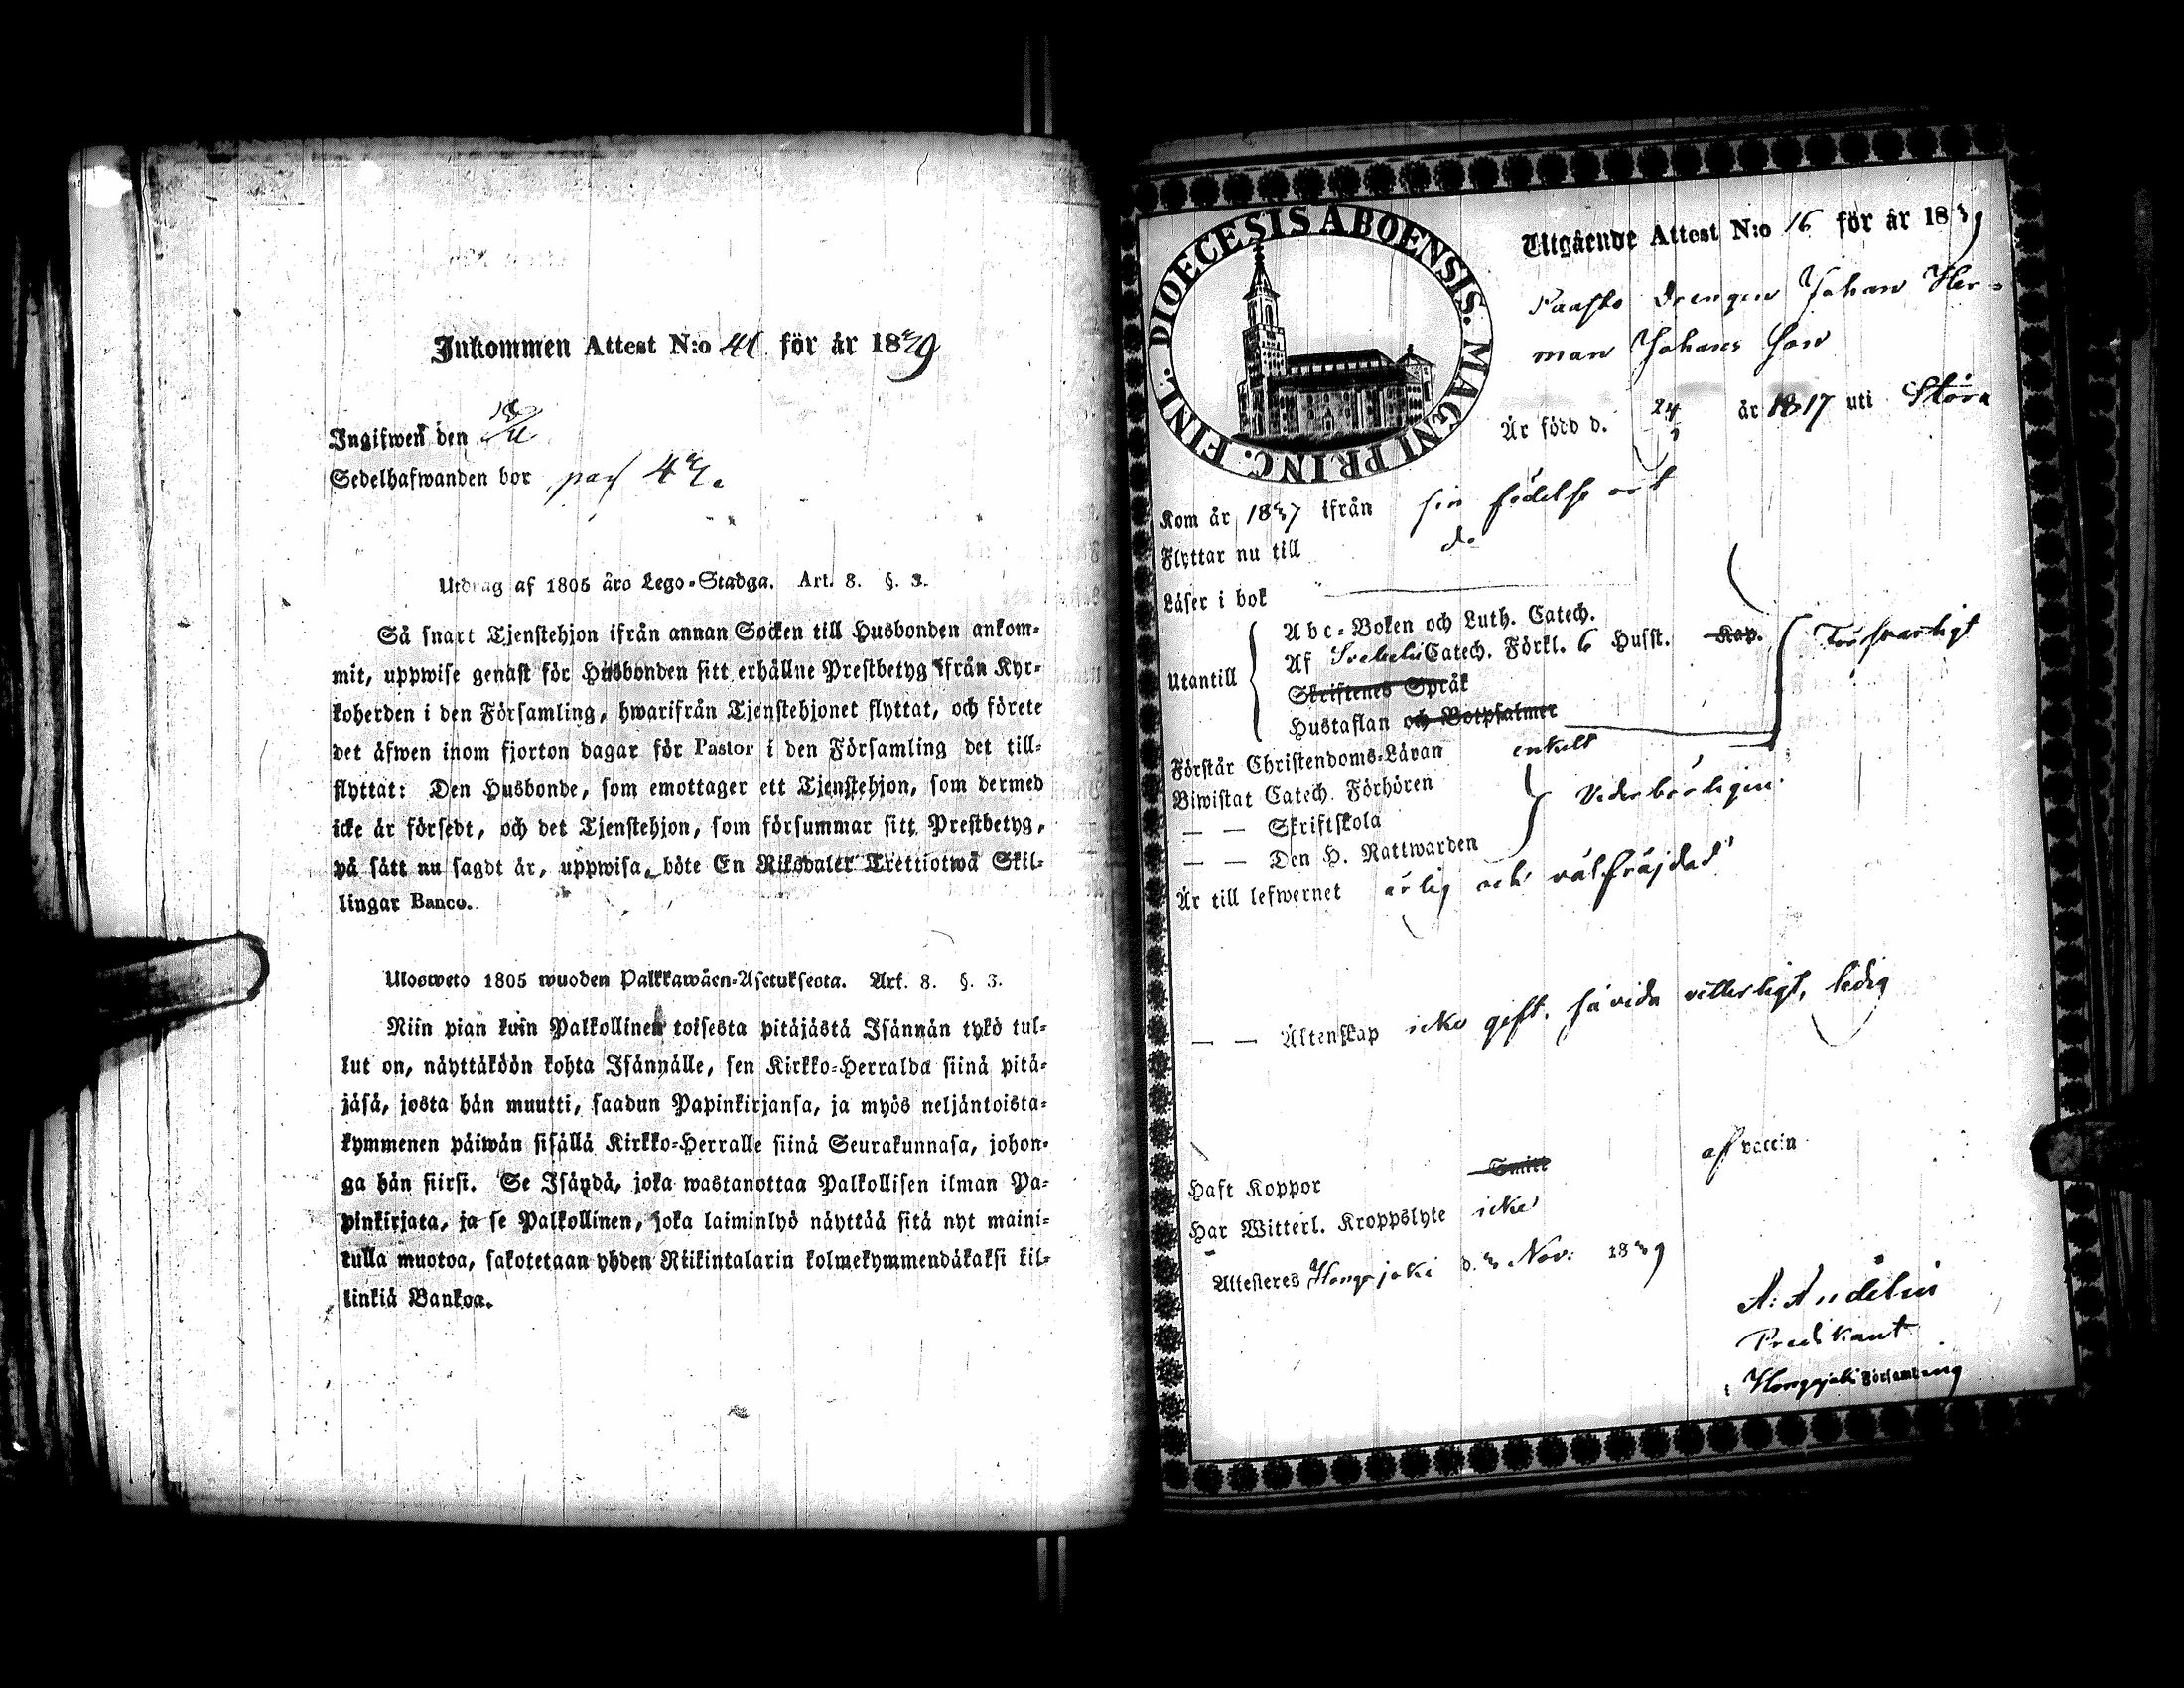 Inkommen Attest N:o 41 för år 1839
Ingifwen den
Sedelhafwanden bor pag 42.
Utdrag af 1805 års Lego-Stadga. Art. 8. §. 3.
Så snart Tjenstehjon ifrån annan Socken till Husbonden ankom-
mit, uppwise genast för Husbonden sitt erhållne Prestbetyg ifrån Kyr-
koherden i den Församling, hwarifrån Tjenstehjonet flyttat, och förete
det äfwen inom fjorton dagar för Pastor i den Församling det till-
flyttat: Den Husbonde, som emottager ett Tjenstehjon, som dermed
icke är försedt, och det Tjenstehjon, som försummar sitt Prestbetyg,
på sätt nu sagdt är, uppwisa, böte En Riksdaler Trettiotwå Skil-
lingar Banco.
Ulosweto 1805 wuoden Palkkawäen-Asetuksesta. Art. 8. §. 3.
Niin pian kuin Palkollinen toisesta pitäjästä Isännän tykö tul-
lut on, näyttäköön kohta Isännälle, sen Kirkko-Herralda siinä pitä-
jäsä, josta hän muutti, saadun Papinkirjansa, ja myös neljäntoista-
kymmenen päiwän sisällä Kirkko-Herralle siinä Seurakunnasa, johon-
ga hän siirsi. Se Isändä, joka wastanottaa Palkollisen ilman Pa-
pinkirjata, ja se Palkollinen, joka laiminlyö näyttää sitä nyt maini-
tulla muotoa, sakotetaan yhden Riikintalarin kolmekymmendäkaksi kil-
linkiä Bankoa.
DIOECESIS ABOENSIS. MAGNI PRINC. FINL.
Utgående Attest N:o 16 för år 1839
Paasko Drengen Johan Her-
man Johans Son
Är född d. 24 år 1817 uti Stora
Kom år 1837 ifrån sin födelse ort
Flyttar nu till do
Läser i bok
Abc-Boken och Luth. Catech.
Utantill Af Svebelii Catech. Förkl. 6 Husst. Kap. Försvarligt
Skriftenes Språk
Hustaflan och Botpsalmer
Förstår Christendoms-Läran enkelt
Biwistat Catech. Förhören
— — Skriftskola Vederbörligen.
— — Den H. Nattwarden
Är till lefwernet ärlig och välfräjdad
— — Äktenskap icke gift, så vida vitterligt, ledig
Haft Koppor Smitt af vaccin
Har Witterl. Kroppslyte icke
Attesteres Hongojoki d. 3 Nov: 1839
Predikant
i Hongojoki Församling